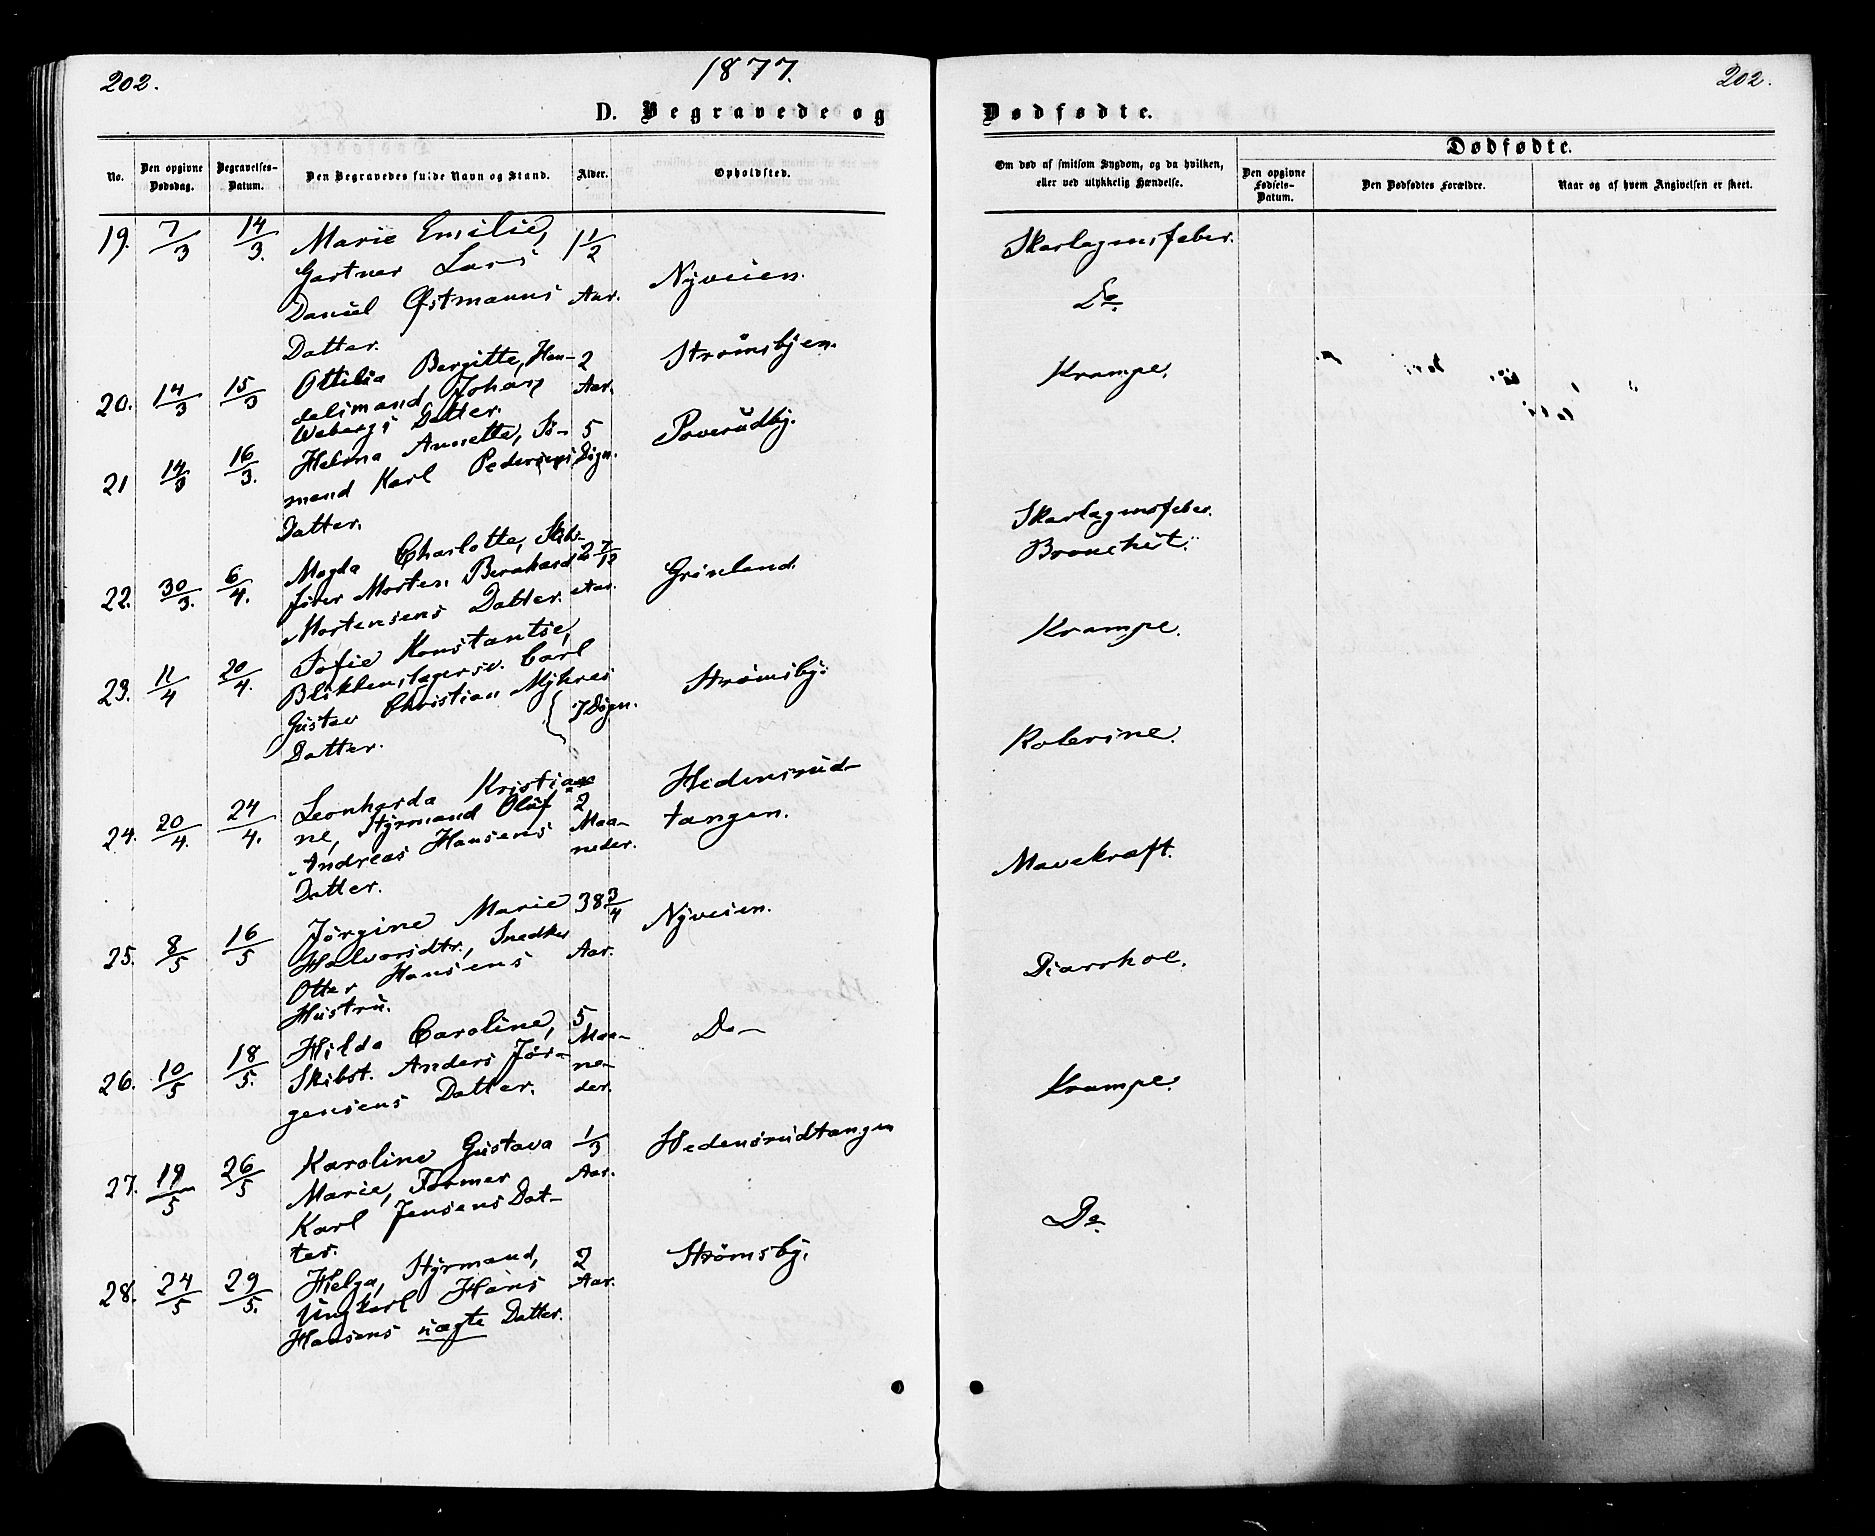 202.
1877.
202.
D. Begravede og
Dødfødte.
Dødfødte.
No.
Den opgivne
Dødsdag.
Begravelses-
Datum.
Den Begravedes fulde Navn og Stand.
Alder.
Opholdsted.
Om død af smitsom Sygdom, og da hvilken,
eller ved ulykkelig Hændelse.
Den opgivne
Fødsels-
Datum.
Den Dødfødtes Forældre.
Naar og af hvem Angivelsen er skeet.
19. 7/3 14/3. Marie Emilie, 1 1/2 Skarlagensfeber.
Gartner Lars Nyveien.
Daniel Østmanns Aar. Do.
Datter.
Ottilia Bergitte, Han- 2 Strømsbyen. Krampe.
20. 14/3 15/3 delsmand Johan Aar.
Webergs Datter.
Helma Annette, Is- 5 Poverudby.
21 14/3 16/3. mand Karl Pedersens Døgn.
Datter.
Skarlagensfeber.
Magda Charlotte, Skibs- 2 7/12 Bronchit.
22. 30/3. 6/4. fører Morten Bernhard Aar. Grønland.
Mortensens Datter.
Sofie Konstantse, Krampe.
23. 11/4 20/4. Blikkenslagersv. Carl Strømsby.
Gustav Christian Myhres 7 Døgn.
Datter.
Kolerine.
Leonharda Kristia- 2 Hedensrud-
24. 20/4. 24/4. ne, Styrmand Oluf Maa- tangen.
Andreas Hansens neder.
Datter.
Mavekræft.
Jørgine Marie 38 3/4 Nyveien.
25. 8/5 16/5 Halvorsdtr., Snedker Aar.
Otter Hansens
Hustru.
Diarrhoe.
Hilda Caroline, 5 Do—
26. 10/5 18/5. Skibst. Anders Jør- Maa-
gensens Datter. ne-
der.
Krampe.
Karoline Gustava 1/3 Hedensrudtangen
27. 19/5 26/5 Marie, Former Aar.
Karl Jensens Dat-
ter.
Do.
Helga, Styrmand, 2 Strømsby.
28. 24/5 29/5. Ungkarl Hans Aar.
Hansens uægte Datter.